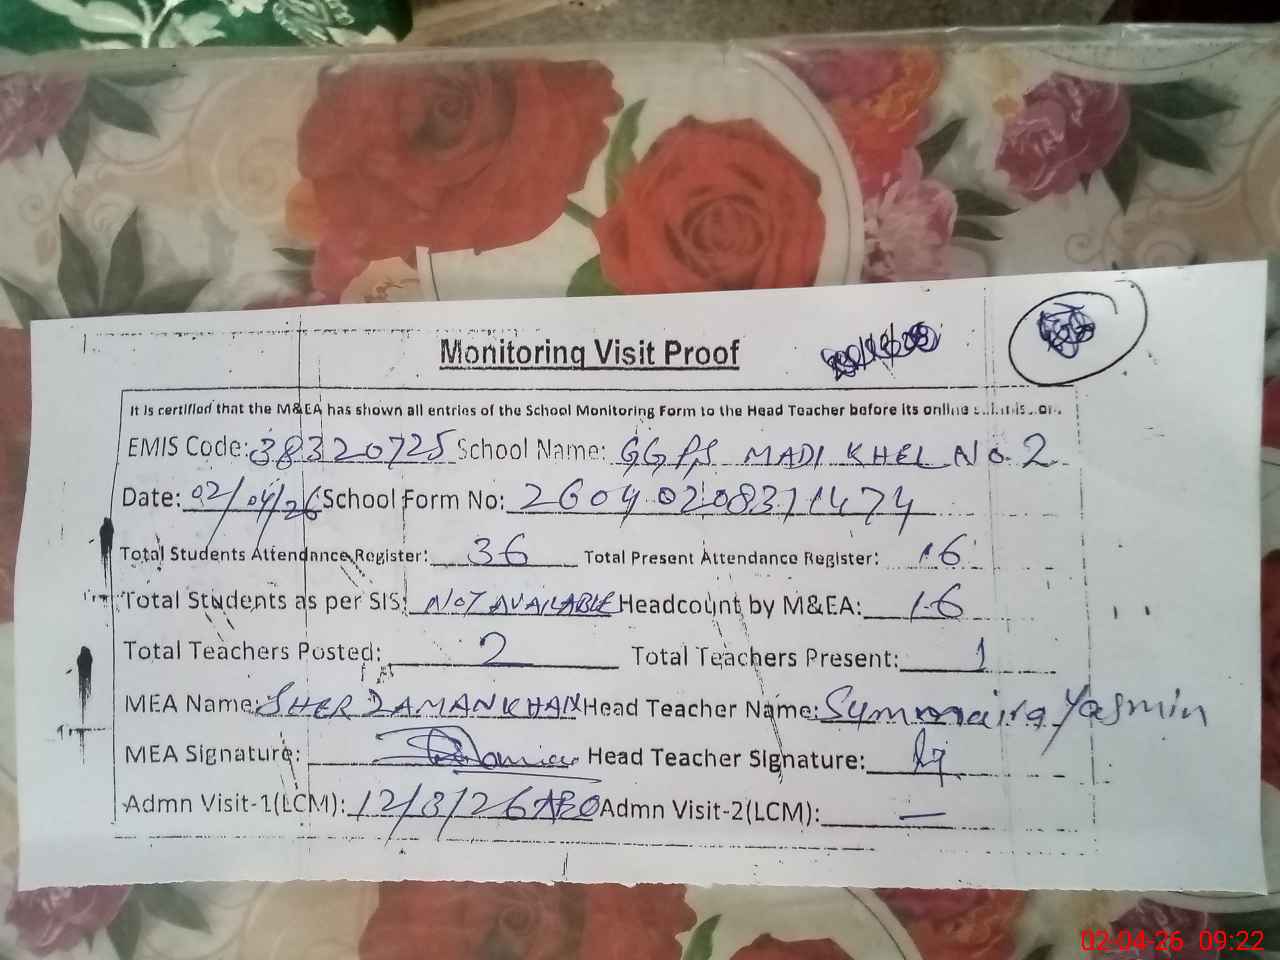 Monitoring Visit Proof
It is certified that the M&EA has shown all entries of the School Monitoring Form to the Head Teacher before its online
EMIS Code: 38320725 School Name: GGPS MADI KHEL No 2
Date: 02/04/26 School Form No: 2604020831474
Total Students Attendance Register: 36 Total Present Attendance Register: 16
Total Students as per SIS: NOT AVAILABLE Headcount by M&EA: 16
Total Teachers Posted: 2 Total Teachers Present: 1
MEA Name: SHER ZAMAN KHAN Head Teacher Name: Summaira Yasmin
MEA Signature: Head Teacher Signature:
Admn Visit-1(LCM): 12/3/26 Admn Visit-2(LCM): —
02-04-26 09:22